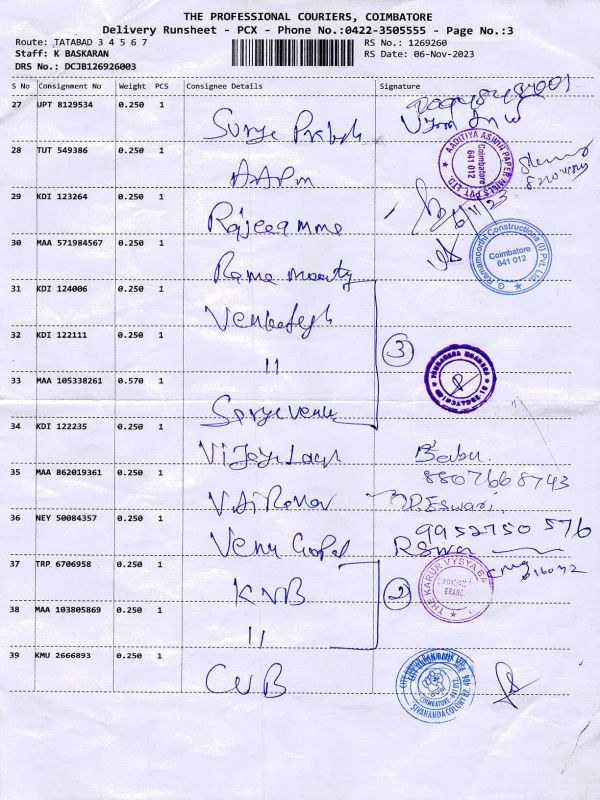 THE PROFESSIONAL COURIERS, COIMBATORE
Delivery Runsheet - PCX - Phone No.:0422-3505555 - Page No.:3
Route: TATABAD 3 4 5 6 7 RS No.: 1269260
Staff: K BASKARAN RS Date: 06-Nov-2023
DRS No.: DCJB126926003
S No Consignment No Weight PCS Consignee Details Signature
27 UPT 8129534 0.250 1 Surya Prakash
28 TUT 549386 0.250 1 AAPM
AADITIYA ASWIN PAPER MILLS PVT. LTD.
Coimbatore 641 012
29 KDI 123264 0.250 1 Rajeeamma
6/11/23
30 MAA 571984567 0.250 1 Rama moorty
G. Ramamoorthi Constructions (I) Pvt. Ltd.
Coimbatore 641 012
31 KDI 124006 0.250 1 Venkatesh
32 KDI 122111 0.250 1 11 3
33 MAA 105338261 0.570 1
34 KDI 122235 0.250 1 Babu
35 MAA 862019361 0.250 1 8807668743
36 NEY 50084357 0.250 1 Venu Gopal 9952750576
37 TRP 6706958 0.250 1 KVB
THE KARUR VYSYA BA
BRANCH
38 MAA 103805869 0.250 1 11 2
39 KMU 2666893 0.250 1 CUB
SIVANANDA COLONY